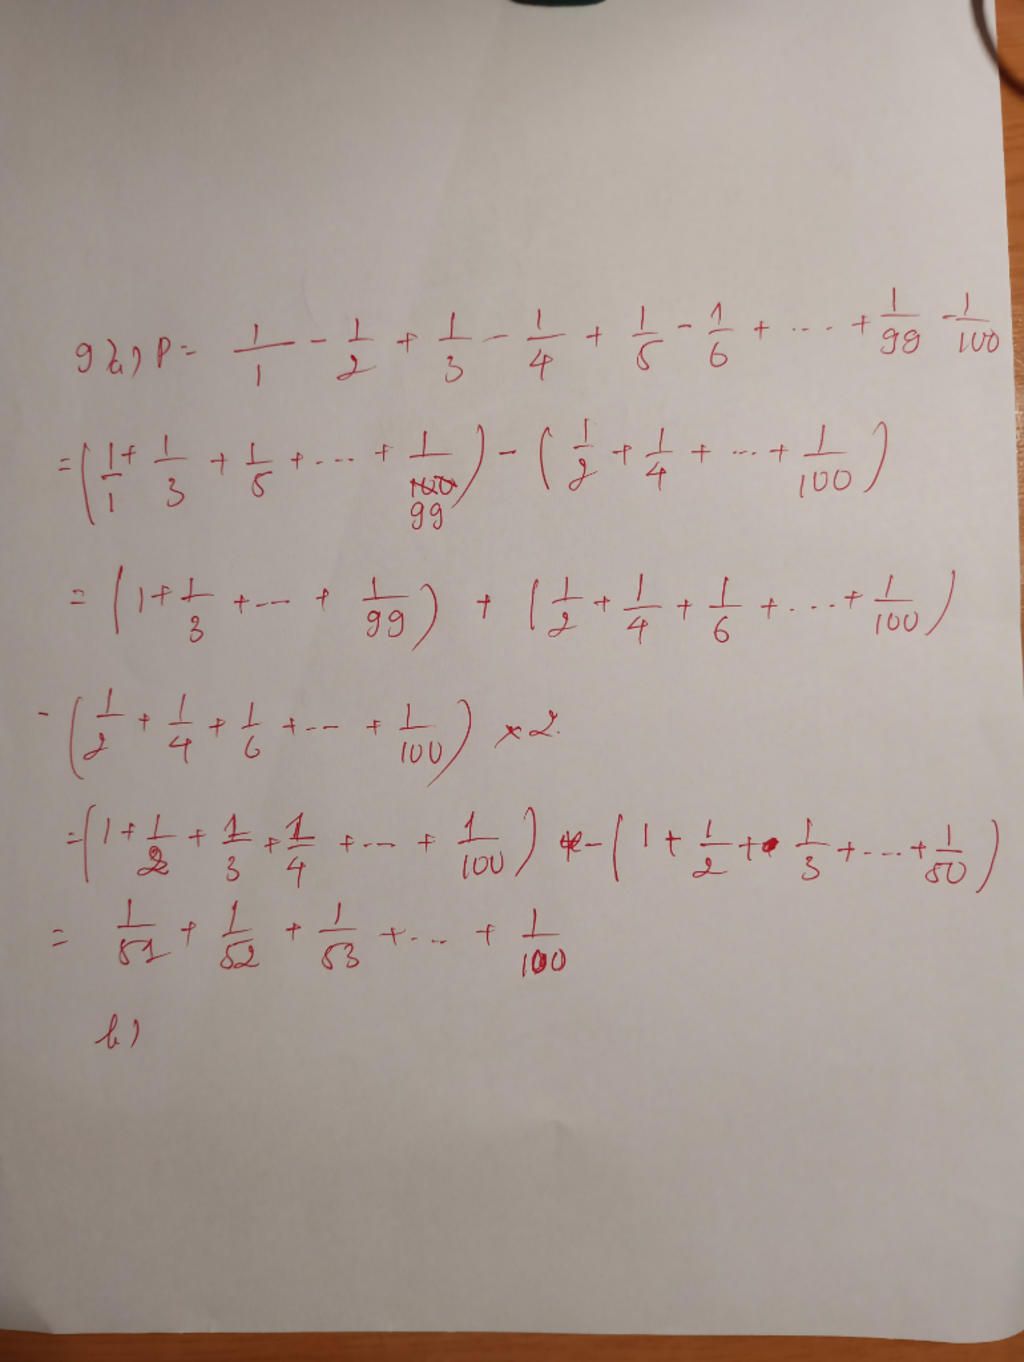 9 a) P = 1/1 - 1/2 + 1/3 - 1/4 + 1/5 - 1/6 + .... + 1/99 - 1/100
= (1/1 + 1/3 + 1/5 + .... + 1/99) - (1/2 + 1/4 + ... + 1/100)
= (1 + 1/3 + ... + 1/99) + (1/2 + 1/4 + 1/6 + .... + 1/100)
- (1/2 + 1/4 + 1/6 + ... + 1/100) × 2.
= (1 + 1/2 + 1/3 + 1/4 + ... + 1/100) - (1 + 1/2 + 1/3 + .... + 1/50)
= 1/51 + 1/52 + 1/53 + ... + 1/100
b)